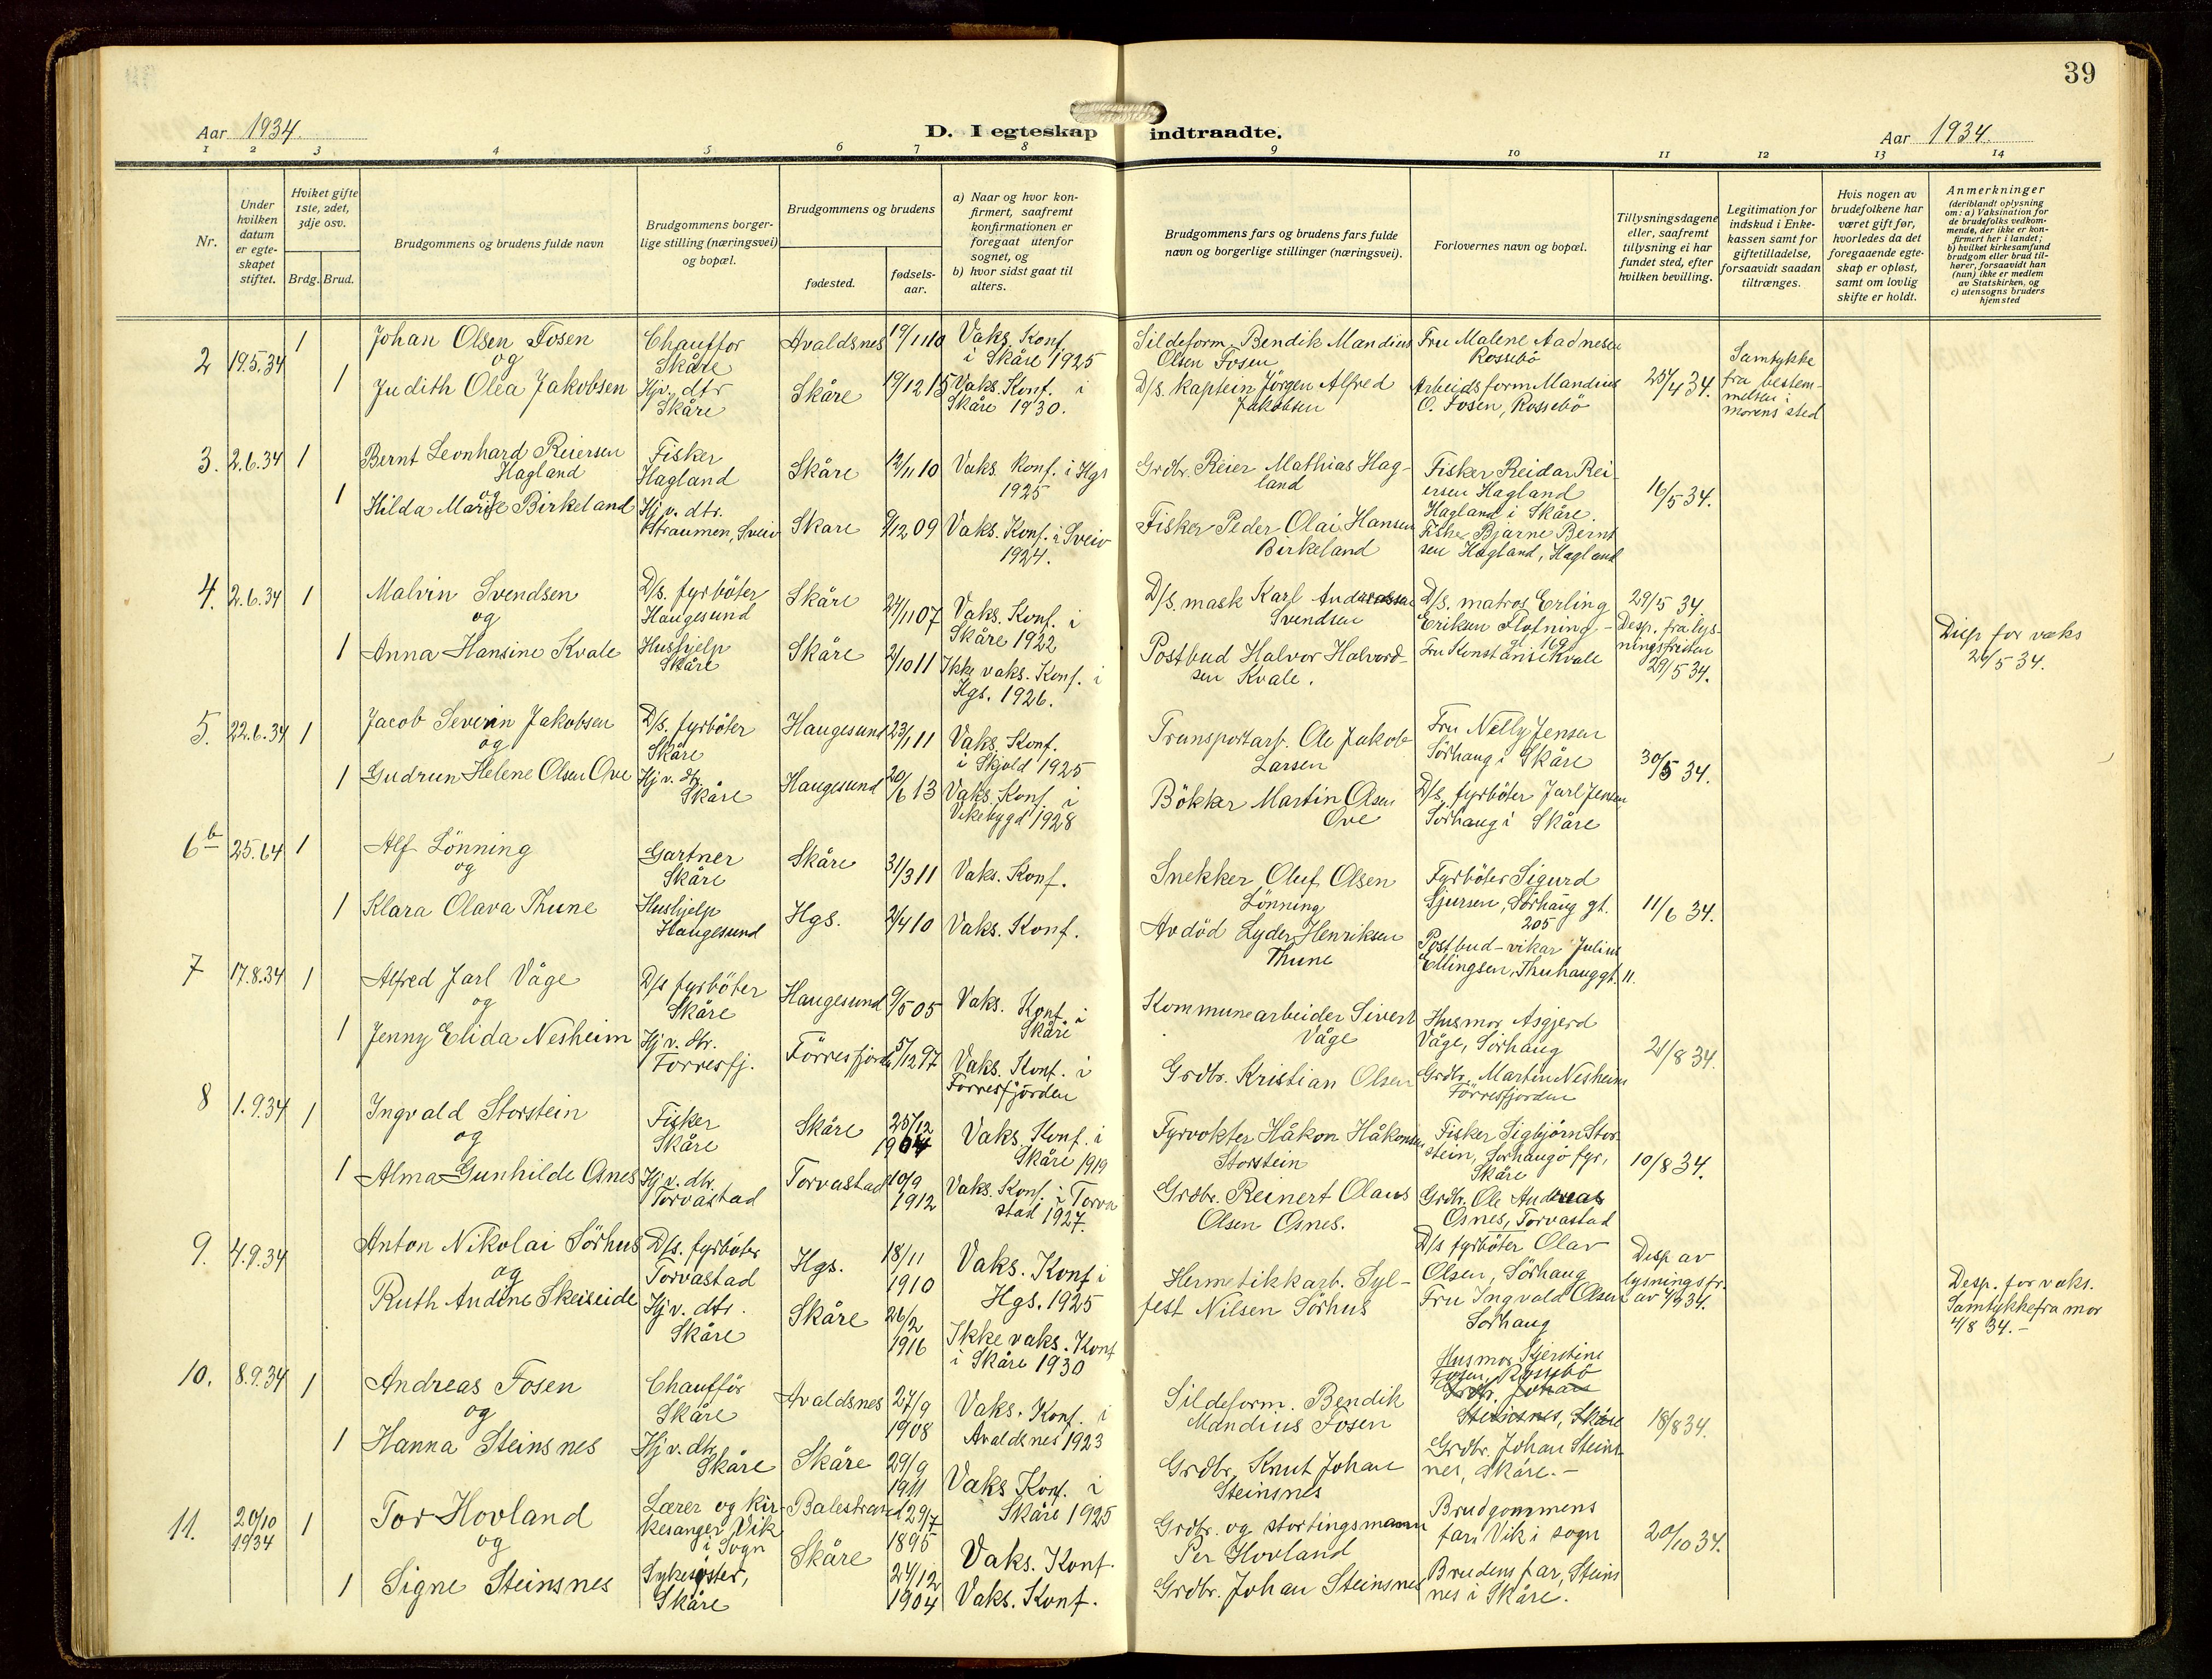 39
Aar 1934.
D. I egteskap indtraadte.
Aar 1934.
1 2 3 4 5 6 7 8 9 10 11 12 13 14
Nr.
Under hvilken datum er egteskapet stiftet.
Hviket gifte 1ste, 2det, 3dje osv.
Brdg. Brud.
Brudgommens og brudens fulde navn
Brudgommens borgerlige stilling (næringsvei) og bopæl.
Brudgommens og brudens
fødested.
fødselsaar.
a) Naar og hvor konfirmert, saafremt konfirmationen er foregaat utenfor sognet, og
b) hvor sidst gaat til alters.
Brudgommens fars og brudens fars fulde navn og borgerlige stillinger (næringsvei).
Forlovernes navn og bopæl.
Tillysningsdagene eller, saafremt tillysning ei har fundet sted, efter hvilken bevilling.
Legitimation for indskud i Enkekassen samt for giftetilladelse, forsaavidt saadan tiltrænges.
Hvis nogen av brudefolkene har været gift før, hvorledes da det foregaaende egteskap er opløst, samt om lovlig skifte er holdt.
Anmerkninger (deriblandt oplysning om: a) Vaksination for de brudefolks vedkommende, der ikke er konfirmert her i landet; b) hvilket kirkesamfund brudgom eller brud tilhører, forsaavidt han (hun) ikke er medlem av Statskirken, og c) utensogns bruders hjemsted
2 19.5.34 1 Johan Olsen Fosen
og
1 Judith Olea Jakobsen
Chauffør
Skåre
Hjv. dtr
Skåre
Avaldsnes 19/11 10
Skåre 19/12 15
Vaks. Konf.
i Skåre 1925
Vaks. Konf. i
Skåre 1930.
Sildeform. Bendik Mandius
Olsen Fosen
D/s. kaptein Jörgen Alfred
Jakobsen
Fru Malene Aadnesen
Rossebö
Arbeidsform Mandius
O. Fosen, Rossebö
25/4 34.
Samtykke
fra bestem-
melsen i
morens sted
3. 2.6.34 1 Bernt Leonhard Reiersen
Hagland
og
1 Hilda Marie Birkeland
Fisker
Hagland
Hj v. dtr.
Straumen, Sveio
Skåre 12/11 10
Skare 9/12 09
Vaks. Konf. i Hgs
1925
Vaks. Konf. i Sveio
1924.
Grdbr. Reier Mathias Hag-
land
Fisker Peder Olai Hansen
Birkeland
Fisker Reidar Rei-
ersen Hagland
Hagland i Skåre
Fisker Bjarne Bernt
sen Hagland, Hagland
16/5 34.
4. 2.6.34 1 Malvin Svendsen
og
1 Anna Hansine Kvale
D/s. fyrböter
Haugesund
Hushjelp
Skåre
Skåre 27/11 07
Skåre 2/10 11
Vaks. Konf. i
Skåre 1922
Ikke vaks. Konf. i
Hgs. 1926.
D/s. mask Karl Andreassen
Svendsen
Postbud Halvor Halvord-
sen Kvale.
D/s. matros Erling
Eriksen Flotning-
gt. 169
Fru Konstanse Kvale
29/5 34.
Desp. fra lys-
ningsfristen
29/5 34.
Disp for vaks
26/5 34.
5. 22.6.34 1 Jacob Severin Jakobsen
og
1 Gudrun Helene Olsen Ove
D/s. fyrböter
Skåre
Hj v. dtr.
Skåre
Haugesund 23/1 11
Haugesund 20/6 13
Vaks. Konf.
i Skjold 1925
Vaks. Konf. i
Vikebygd 1928
Transportarb. Ole Jakob
Larsen
Bökker Martin Olsen
Ove
Fru Nelly Jensen
Sörhaug i Skåre
D/s. fyrböter Jarl Jensen
Sörhaug i Skåre
30/5 34.
6b 25.64 1 Alf Lönning
og
1 Klara Olava Thune
Gartner
Skåre
Hushjelp
Haugesund
Skåre 31/3 11
Hgs. 2/4 10
Vaks. Konf.
Vaks. Konf.
Snekker Oluf Olsen
Lönning
Avdöd Lyder Henriksen
Thune
Fyrböter Sigurd
Sjursen, Sörhaug gt.
205
Postbud-vikar Julius
Ellingsen, Thuhauggt. 11.
11/6 34.
7 17.8.34 1 Alfred Jarl Våge
og
1 Jenny Elida Nesheim
D/s fyrböter
Skåre
Hj v. dtr.
Förresfj.
Haugesund 9/5 05
Förresfjorden 5/12 97
Vaks. Konf. i
Skåre
Vaks. Konf. i
Förresfjorden
Kommunearbeider Sivert
Våge
Grdbr. Kristian Olsen
Husmor Asgjerd
Våge, Sörhaug
Grdbr. Martin Nesheim
Förresfjorden
21/8 34.
8 1.9.34 1 Ingvald Storstein
og
1 Alma Gunhilde Osnes
Fisker
Skåre
Hj v. dtr.
Torvastad
Skåre 25/12 1904
Torvastad 10/9 1912
Vaks. Konf. i
Skåre 1919
Vaks. Konf. i Torva
stad 1927.
Fyrvokter Håkon Håkonsen
Storstein
Grdbr. Reinert Olaus
Olsen Osnes.
Fisker Sigbjörn Stor-
stein, Sörhaugö fyr,
Skåre
Grdbr. Ole Andreas
Osnes, Torvastad
10/8 34.
9. 4.9.34 Anton Nikolai Sörhus
og
Ruth Andine Skeiseide
D/s. fyrböter
Torvastad
Hj v. dtr.
Skåre
Hgs. 18/11 1910
Skåre 26/2 1916
Vaks. Konf i
Hgs. 1925
Ikke vaks. Konf
i Skåre 1930
Hermetikkarb. Syl-
fest Nilsen Sörhus
D/s fyrböter Olav
Olsen, Sörhaug
Fru Ingvald Olsen
Sörhaug
Desp av
lysningsfr.
av 4/9 34.
Desp. for vaks.
Samtykke fra mor
4/8 34.-
10. 8.9.34 1 Andreas Fosen
og
1 Hanna Steinsnes
Chauffør
Skåre
Hj v. dtr
Skåre
Avaldsnes 27/9 1908
Skåre 29/9 1911
Vaks. Konf. i
Avaldsnes 1923
Vaks Konf. i
Skåre 1925
Sildeform. Bendik
Mandius Fosen
Grdbr. Knut Johan
Steinsnes
Husmor Kjerstine
Fosen, Rossebö
Grdbr. Johan
Steinsnes, Skåre
Grdbr. Johan Steins-
nes, Skåre.-
18/8 34.
11. 20/10 1934 1 Tor Hovland
og
1 Signe Steinsnes
Lærer og kir-
kesanger, Vik
i Sogn
Sykesöster,
Skåre
Balestrand 29/7 1895
Skåre 24/12 1904
Vaks. Konf.
Vaks. Konf.
Grdbr. og stortingsmann
Per Hovland
Grdbr. Johan Steinsnes
Brudgommens
far, Vik i sogn
Brudens far, Steins
nes i Skåre.
20/10 34.